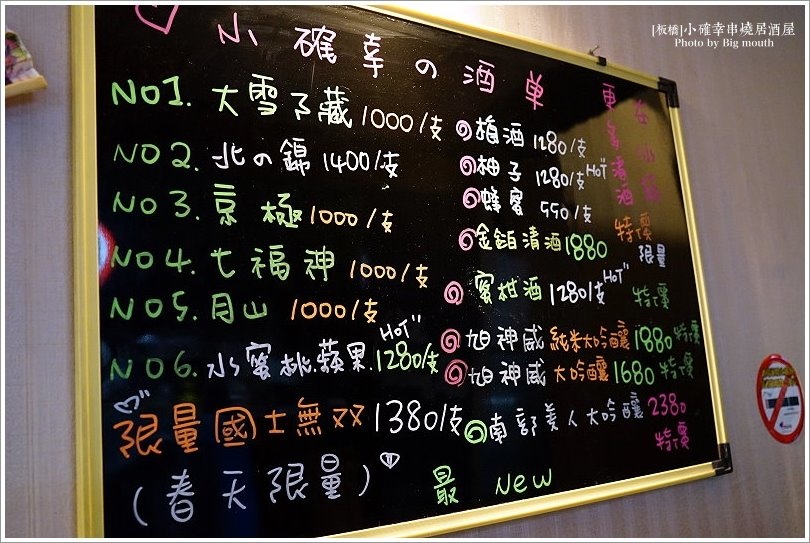 [板橋]小確幸串燒居酒屋
Photo by Big mouth
小確幸の酒单
NO1. 大雪了藏 1000/支
NO2. 北の錦 1400/支
NO3. 京極 1000/支
NO4. 七福神 1000/支
NO5. 月山 1000/支
NO6. 水蜜桃.蘋果. 1280/支 HOT
限量國士無双 1380/支
(春天限量)
梅酒 1280/支
柚子 1280/支 HOT
蜂蜜 550/支
金鉑清酒 1880 特價 限量
蜜柑酒 1280/支 HOT 特價
旭神威 純米大吟釀 1880 特價
旭神威 大吟釀 1680 特價
南部美人大吟釀 2380 特價
最 NEW